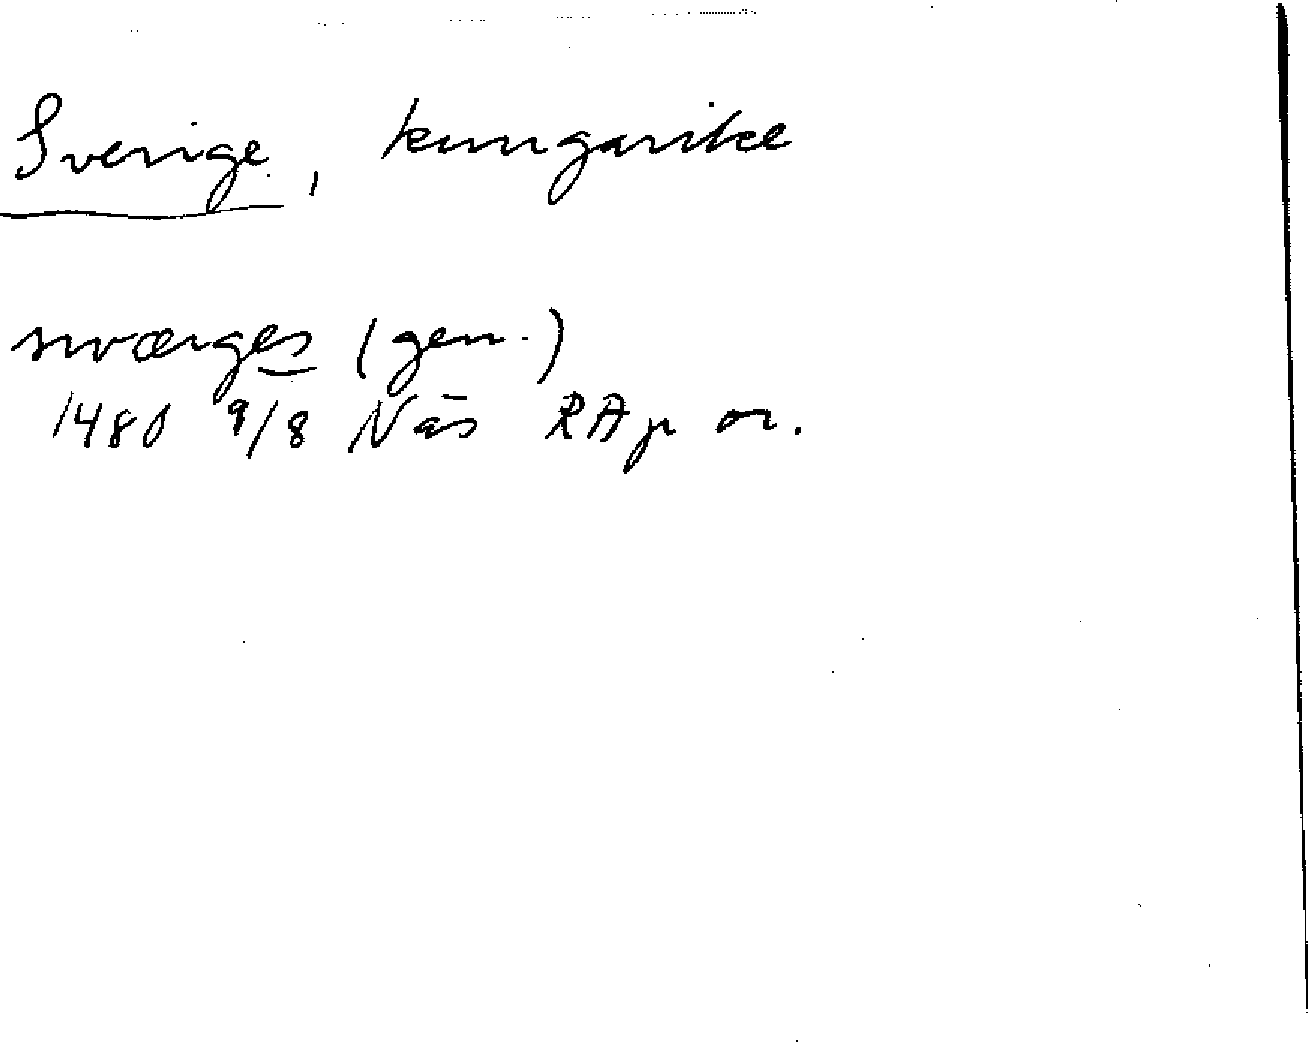 Sverige, kungarike
swærges (gen.)
1480 9/8 Näs RAp or.